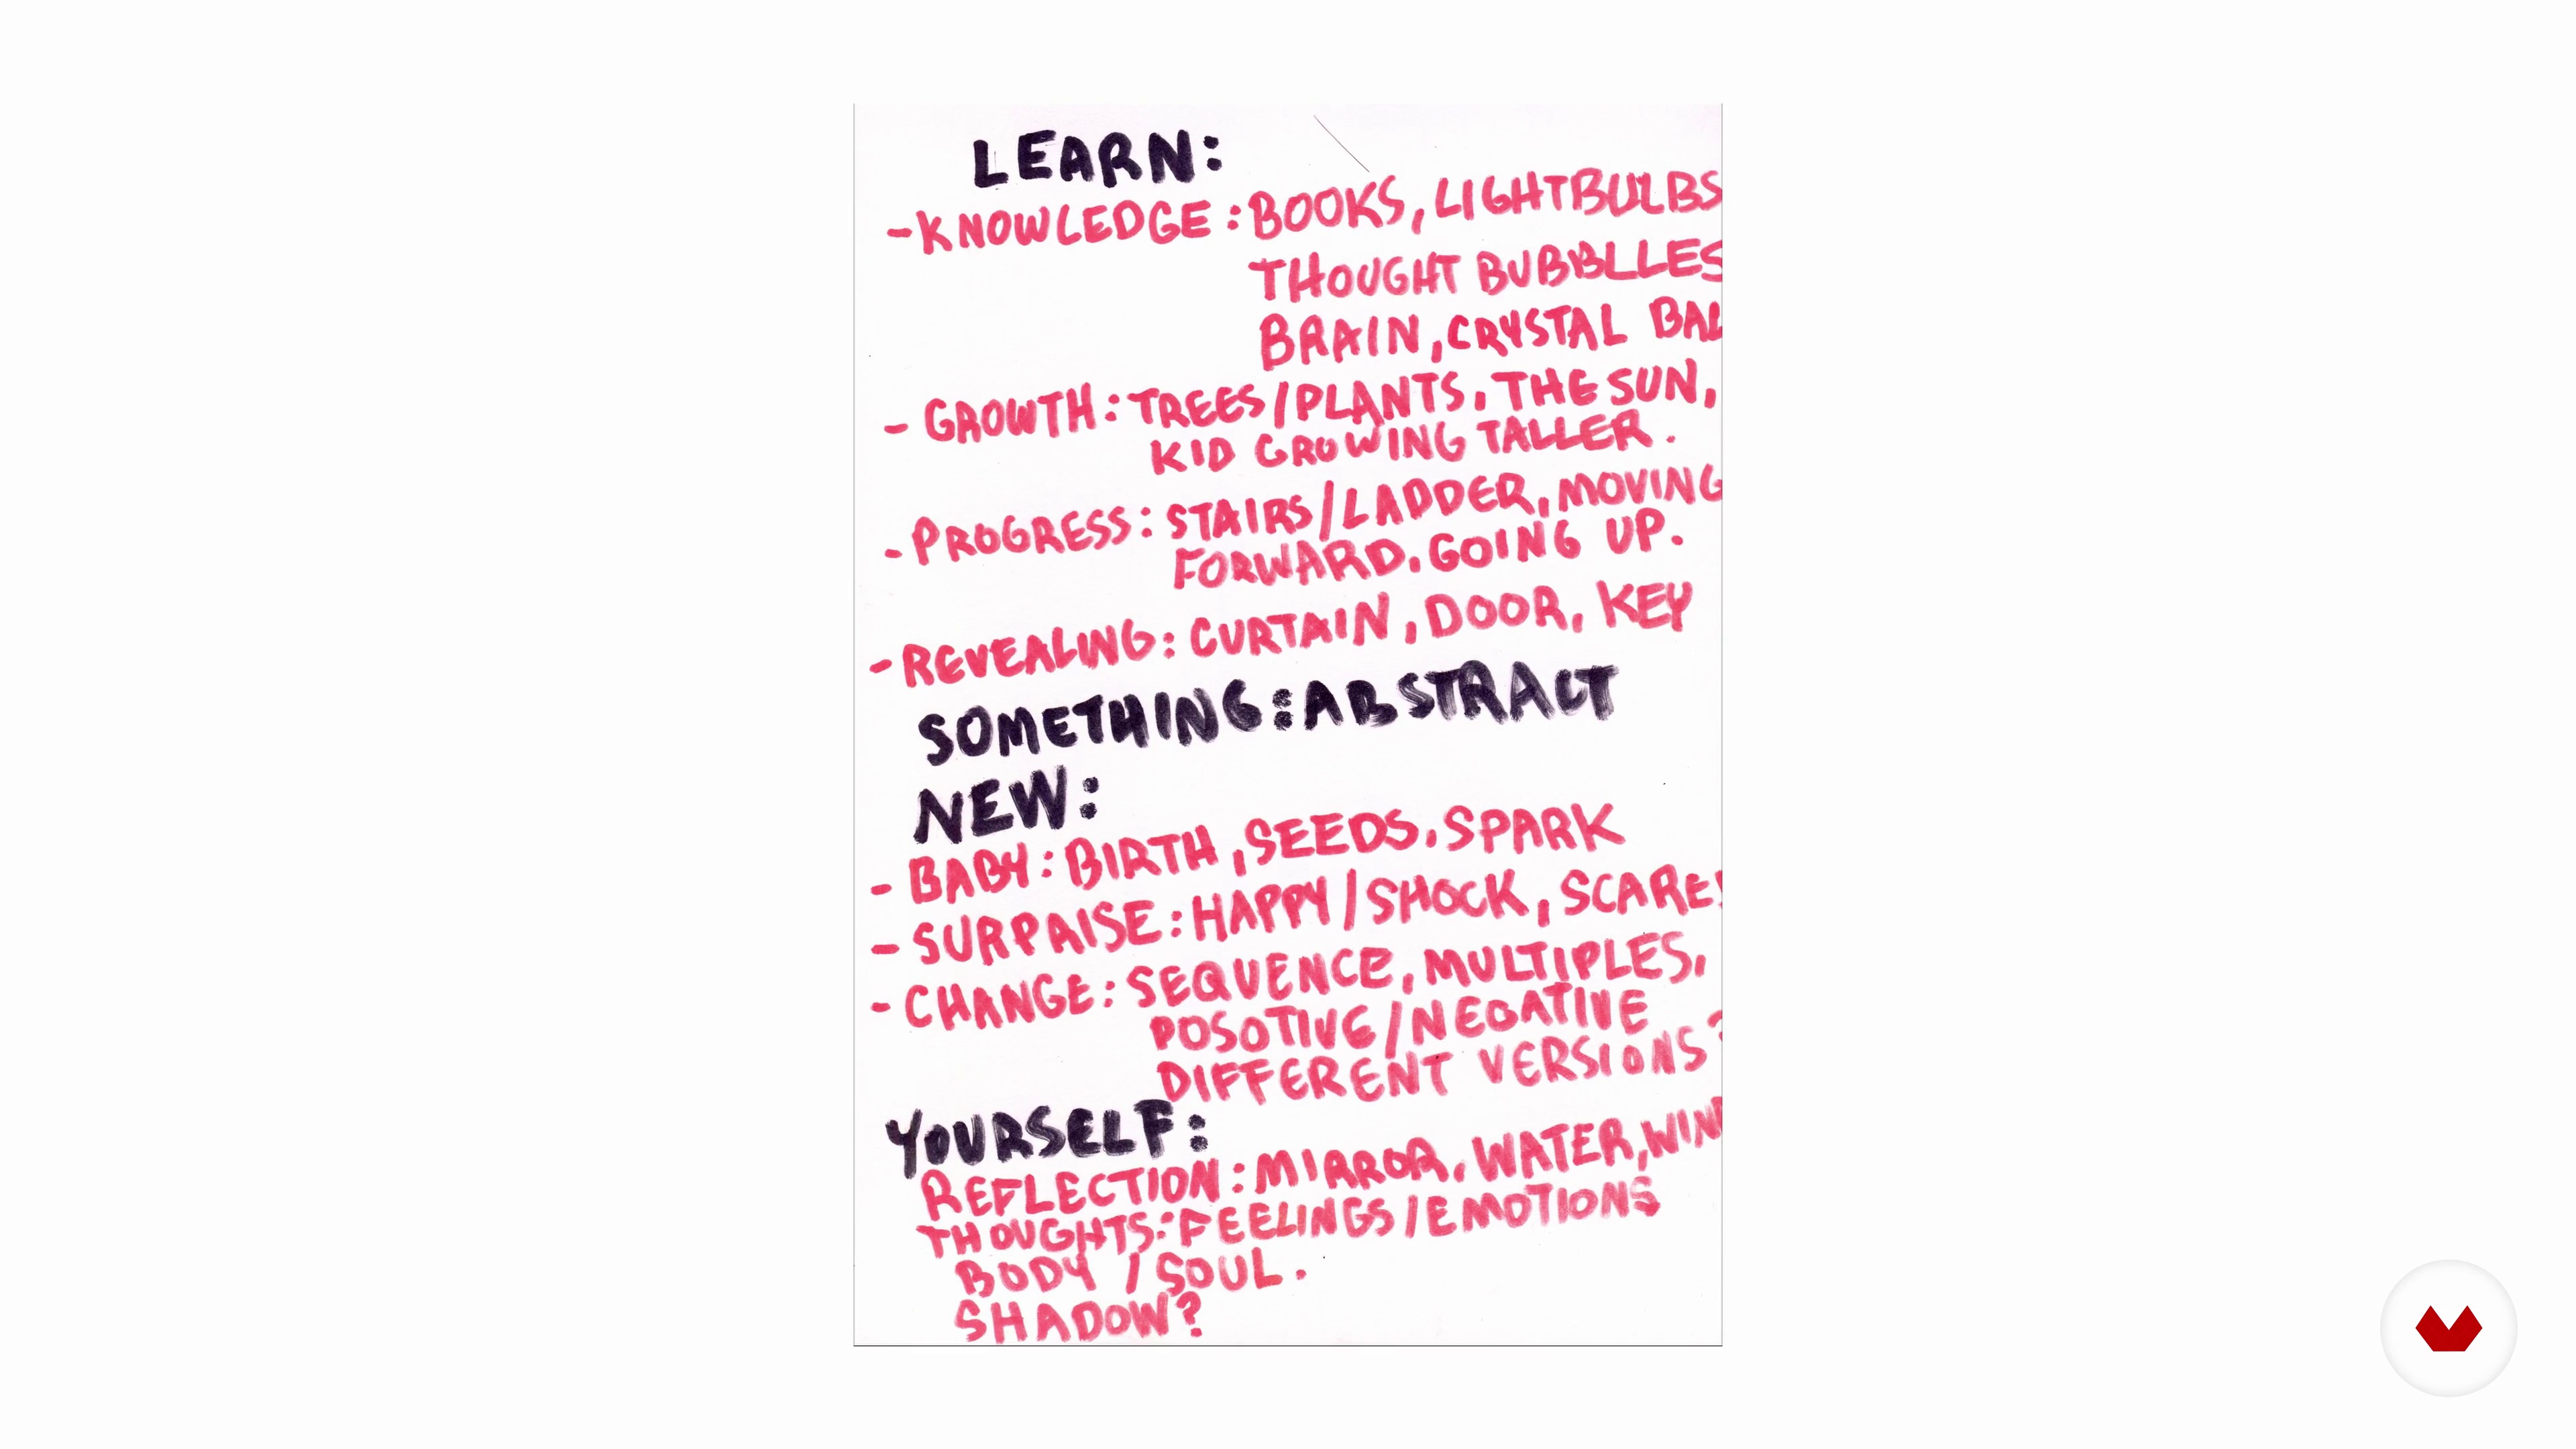 LEARN:
-KNOWLEDGE: BOOKS, LIGHTBULBS
THOUGHT BUBBLLES
BRAIN, CRYSTAL BAL
- GROWTH: TREES/PLANTS, THE SUN,
KID GROWING TALLER.
-PROGRESS: STAIRS/LADDER, MOVING
FORWARD, GOING UP.
-REVEALING: CURTAIN, DOOR, KEY
SOMETHING: ABSTRACT
NEW:
- BABY: BIRTH, SEEDS, SPARK
- SURPRISE: HAPPY/SHOCK, SCARE!
- CHANGE: SEQUENCE, MULTIPLES,
POSOTIVE/NEGATIVE
DIFFERENT VERSIONS?
YOURSELF:
REFLECTION: MIRROR, WATER,
THOUGHTS: FEELINGS/EMOTIONS
BODY / SOUL.
SHADOW?